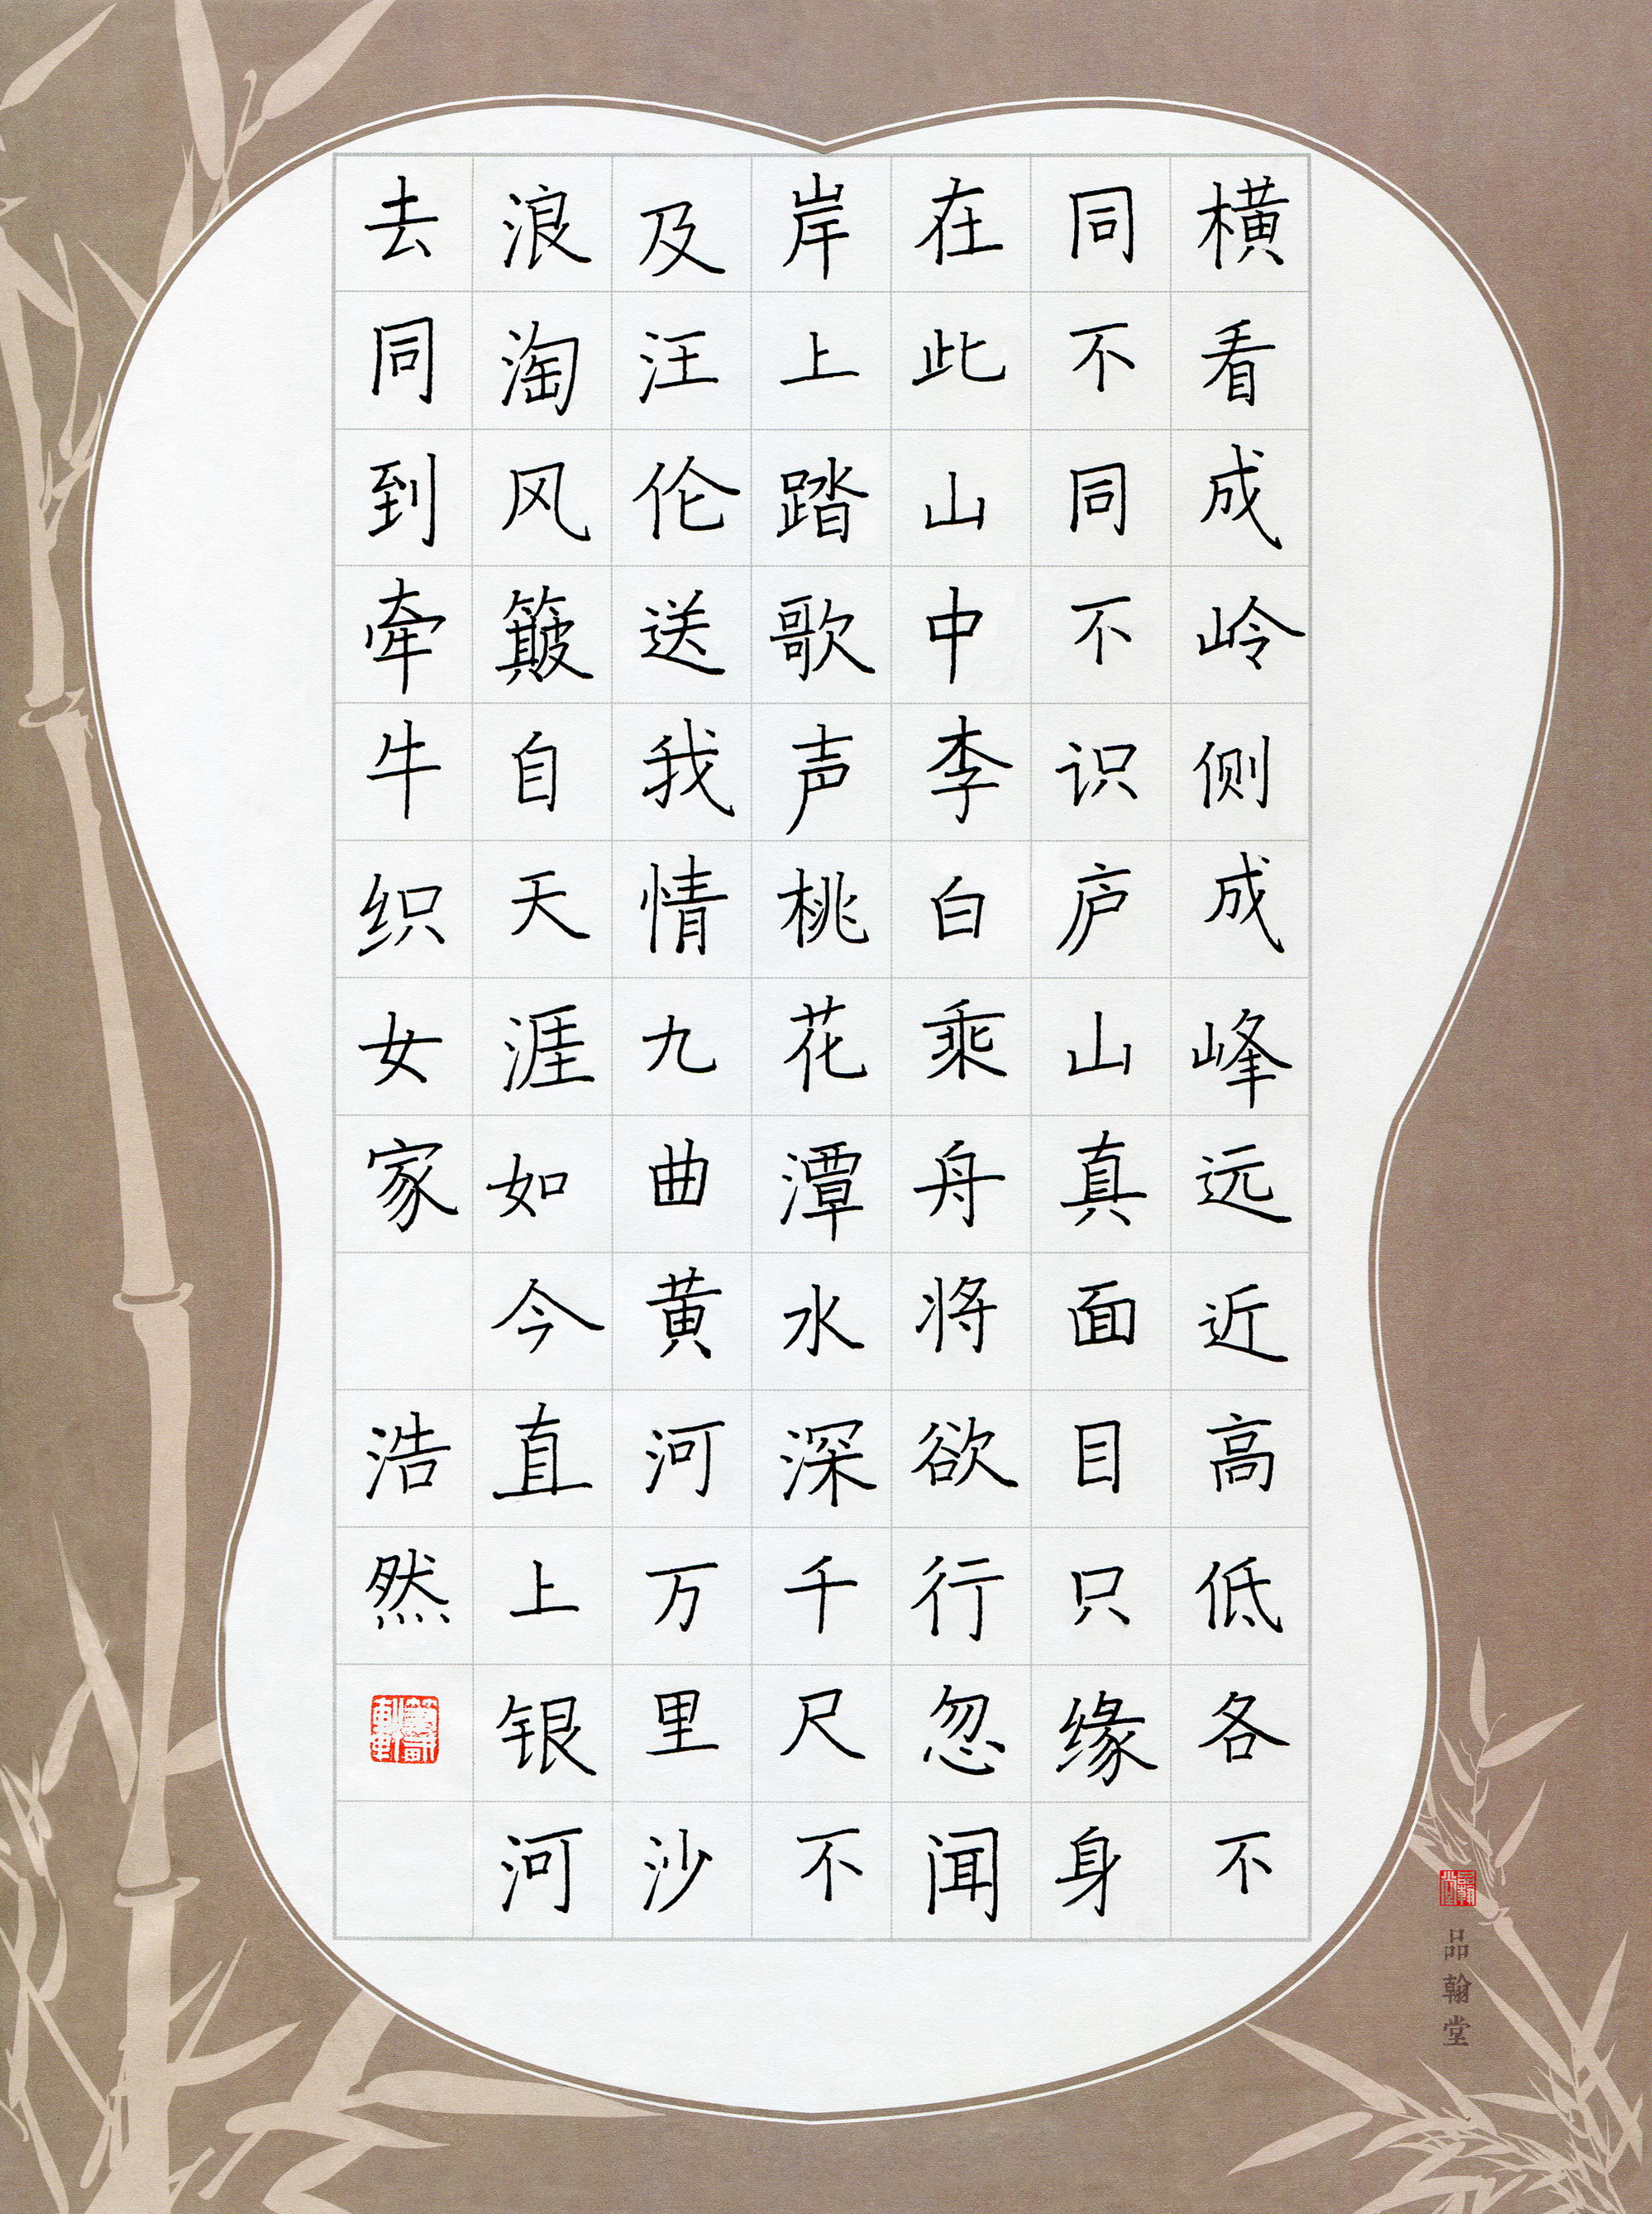 横看成岭侧成峰远近高低各不
同不同不识庐山真面目只缘身
在此山中李白乘舟将欲行忽闻
岸上踏歌声桃花潭水深千尺不
及汪伦送我情九曲黄河万里沙
浪淘风簸自天涯如今直上银河
去同到牵牛织女家 浩然
品翰堂